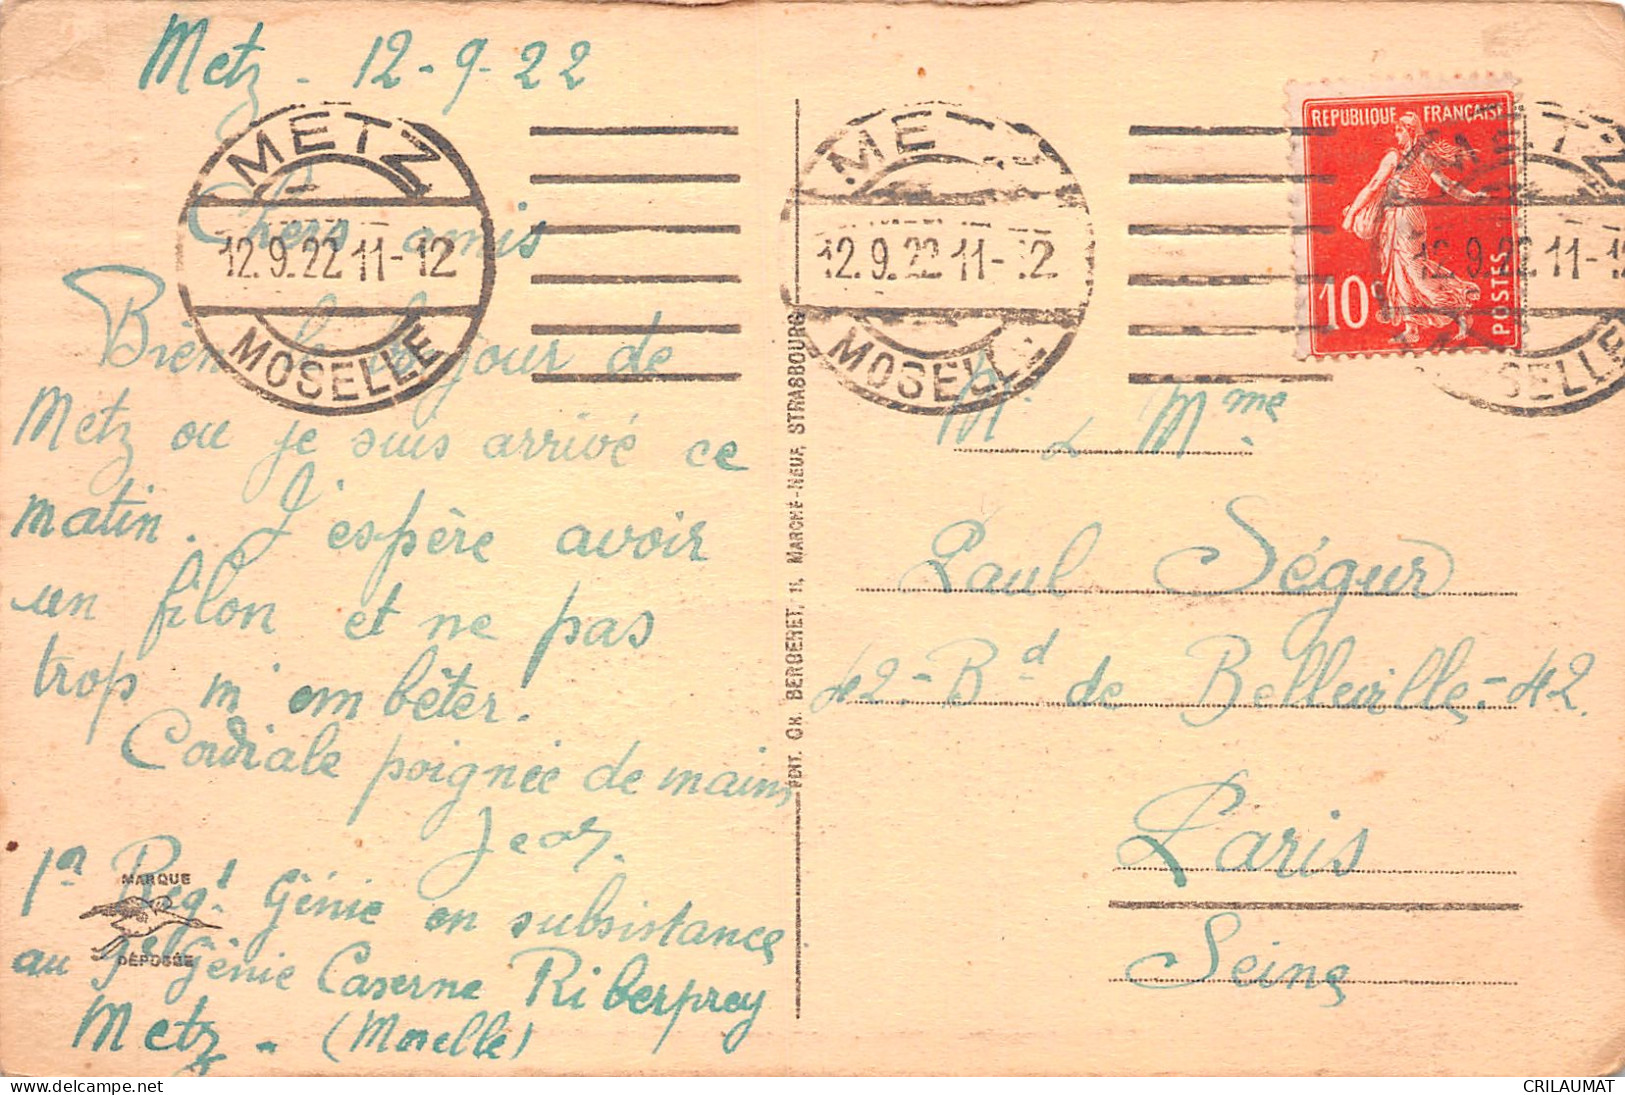 Metz - 12-9-22
METZ
12.9.22 11-12
MOSELLE
Chers amis
Bien le bonjour de
Metz ou je suis arrivé ce
matin. J'espère avoir
un filon et ne pas
trop m'embêter.
Cordiale poignée de mains
Jean.
1er Régt Génie en subsistance
au Génie Caserne Riberprey
Metz - (Moselle)
MARQUE
DÉPOSÉE
EDIT. CH. BERGERET, 11, MARCHÉ-NEUF, STRASBOURG
METZ
12.9.22 11-12
MOSELLE
REPUBLIQUE FRANÇAISE
10c
POSTES
METZ
12.9.22 11-12
MOSELLE
Mr & Mme
Paul Ségur
42 - Bd de Belleville - 42
Paris
Seine
CRILAUMAT